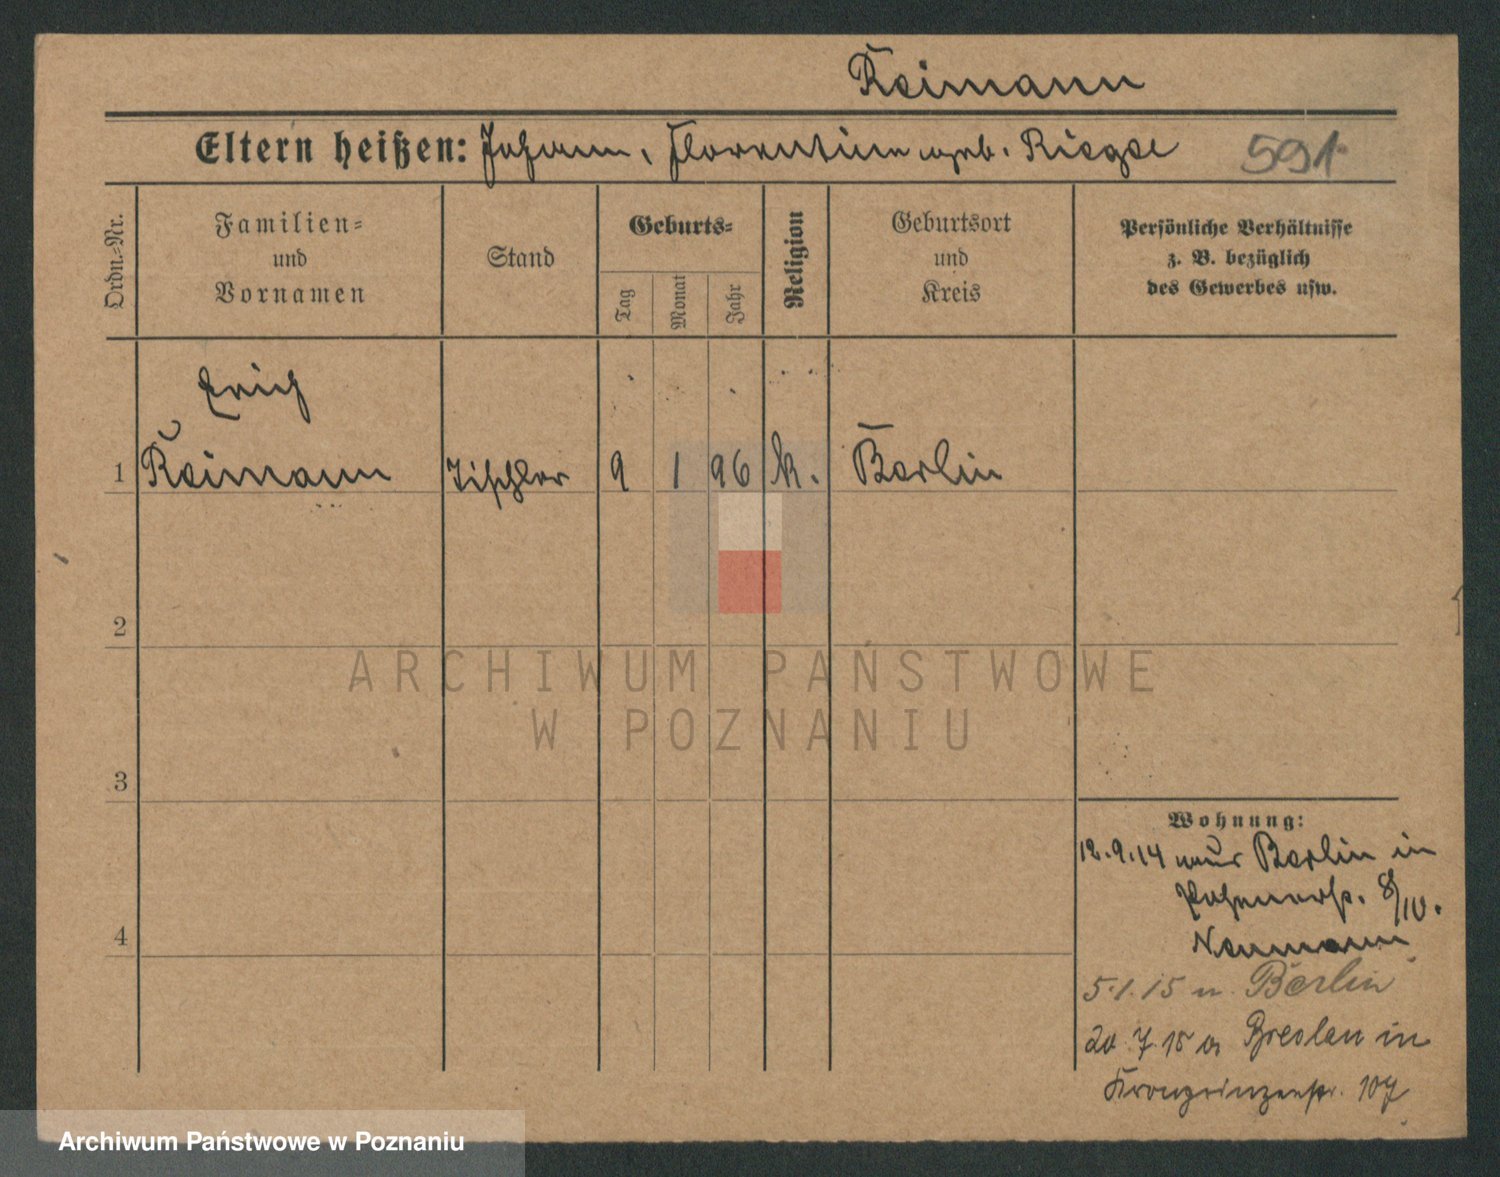 Reimann
Eltern heißen: Johann, Florentine geb. Riegel 591
Ordn.=Nr.
Familien=
und
Vornamen
Stand
Geburts=
Tag
Monat
Jahr
Religion
Geburtsort
und
Kreis
Persönliche Verhältnisse
z. B. bezüglich
des Gewerbes usw.
Erich
1 Reimann Tischler 9 1 96 k. Berlin
2
ARCHIWUM PAŃSTWOWE
W POZNANIU
3
4
Wohnung:
12.9.14 aus Berlin in
8/IV.
Neumann
5.1.15 n. Berlin
20.7.15 a Breslau in
Kronprinzenstr. 107
Archiwum Państwowe w Poznaniu